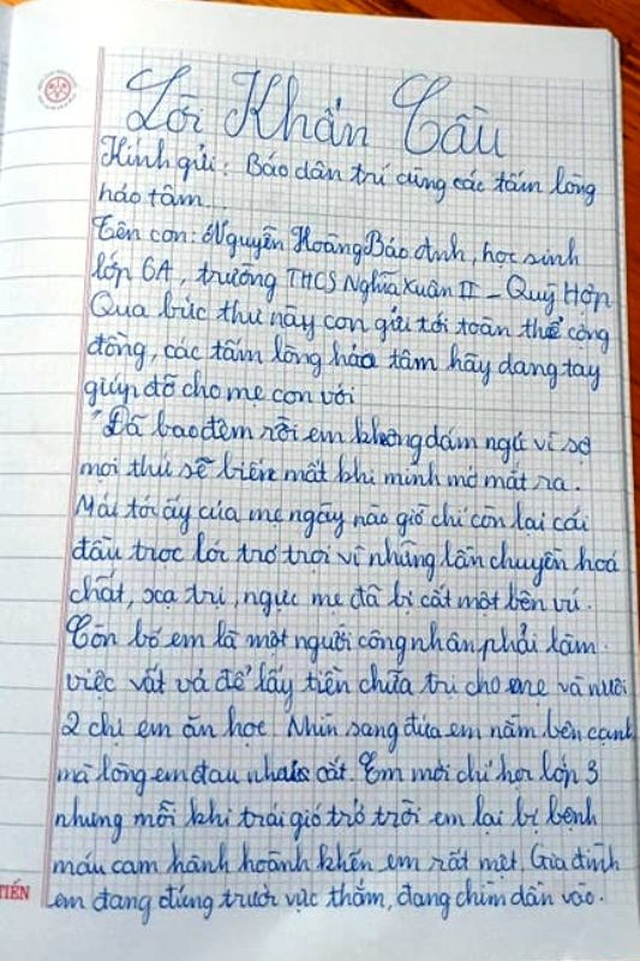 Lời Khẩn Cầu
Kính gửi: Báo dân trí cùng các tấm lòng
hảo tâm...
Tên con: Nguyễn Hoàng Bảo Anh, học sinh
lớp 6A, trường THCS Nghĩa Xuân II - Quỳ Hợp
Qua bức thư này con gửi tới toàn thể cộng
đồng, các tấm lòng hảo tâm hãy dang tay
giúp đỡ cho mẹ con với
"Đã bao đêm rồi em không dám ngủ vì sợ
mọi thứ sẽ biến mất khi mình mở mắt ra.
Mái tóc ấy của mẹ ngày nào giờ chỉ còn lại cái
đầu trọc lóc trơ trọi vì những lần chuyền hoá
chất, xạ trị, ngực mẹ đã bị cắt một bên vú.
Còn bố em là một người công nhân, phải làm
việc vất vả để lấy tiền chữa trị cho mẹ và nuôi
2 chị em ăn học. Nhìn sang đứa em nằm bên cạnh
mà lòng em đau như cắt. Em mới chỉ học lớp 3
nhưng mỗi khi trái gió trở trời em lại bị bệnh
máu cam hành hoành khến em rất mệt. Gia đình
em đang đứng trước vực thẳm, đang chìm dần vào.
TIẾN